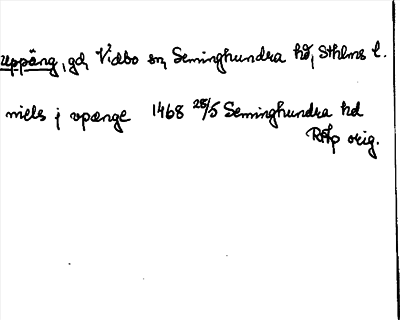 Uppäng, gd, Vidbo sn, Seminghundra hd, Sthlms l.
niels j vpænge 1468 28/5 Seminghundra hd
RAp orig.